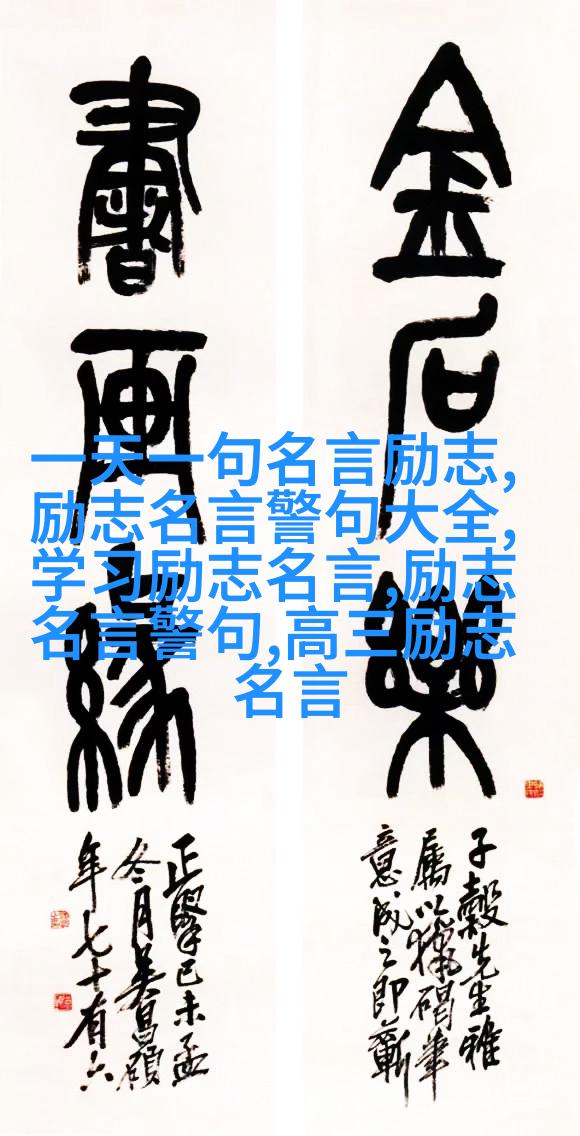 金石樂
子穀先生雅
屬以獵碣筆
意成之即蘄
書画緣
正己未孟
冬月吴昌碩
年七十有六
一天一句名言励志,
励志名言警句大全,
学习励志名言,励志
名言警句,高三励志
名言